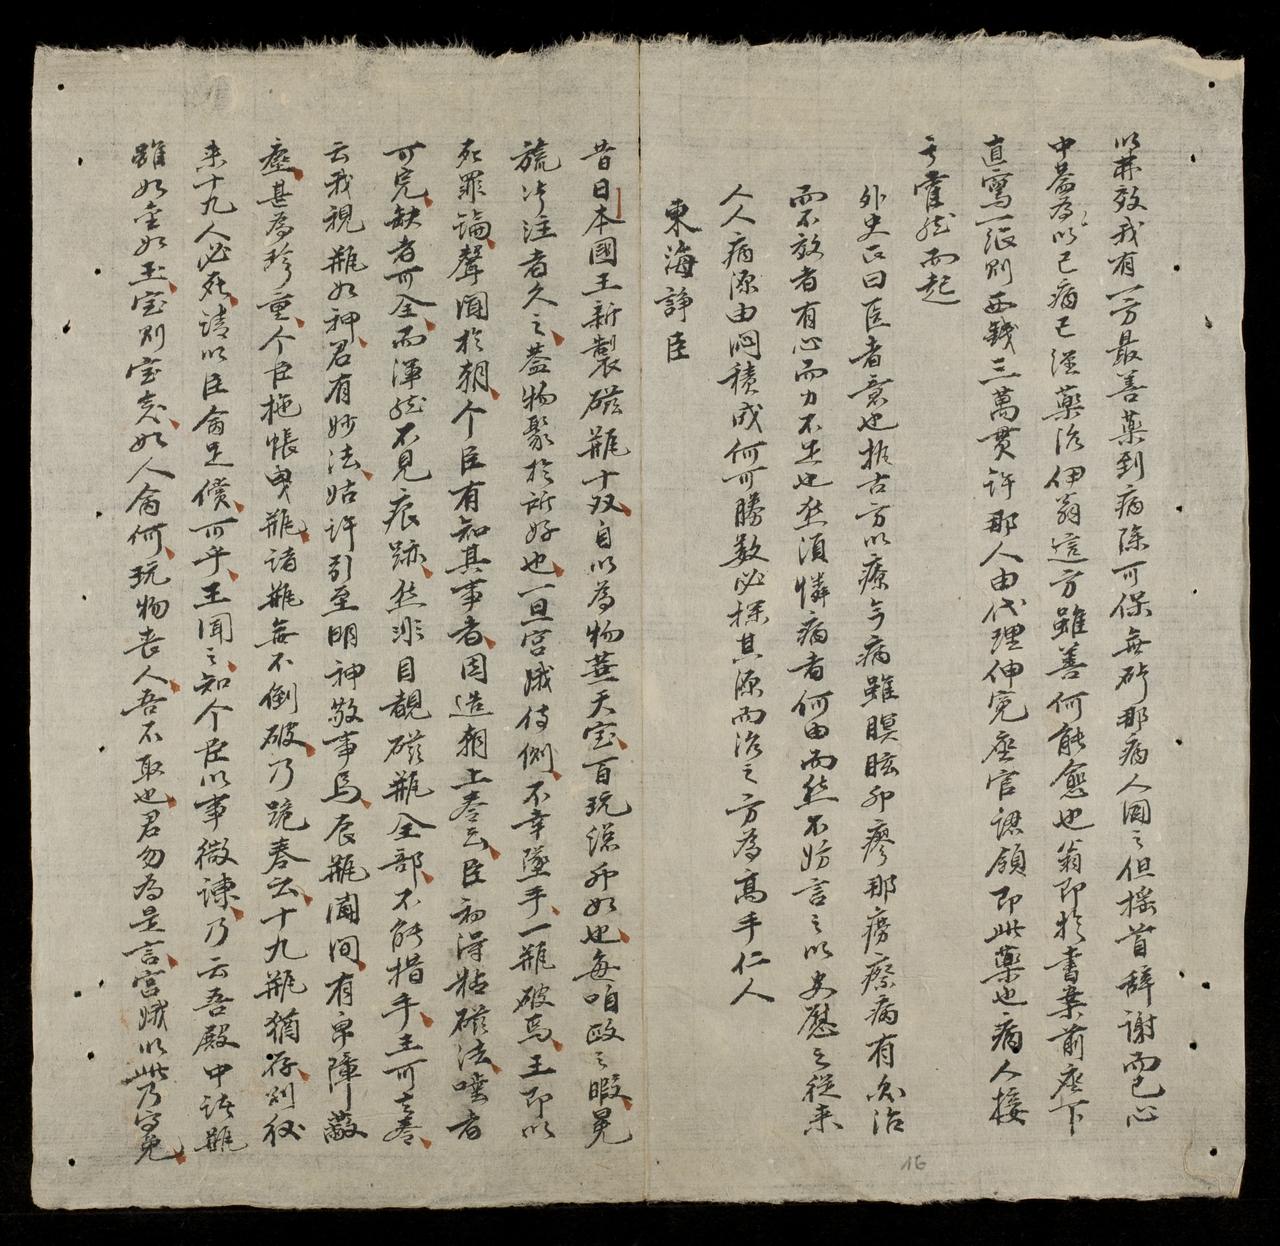 以禁效我有一方最善藥到病除可保無碍那病人固之但搖首辞謝而已心
中蓋為以己病已淫藥治伊翁這方雖善何能愈也翁即於書案前座下
直寫一張則西錢三萬貫许那人由代理伸冤座官認領即此藥也病人接
之霍然而起
外史氏曰医者意也按古方以療今病雖瞑眩卯瘳那癆瘵病有欲治
而不放者有心而力不足也然須憐病者何由而然不妨言之以安慰之從来
人人病源由悶積成何可勝数必探其源而治之方為高手仁人
東海諍臣
昔日本國王新製磁瓶十双自以為物華天宝百玩總卯如也每咱政之暇冕
旒泞注者久之蓋物聚於所好也一旦宮娥侍側不幸墜手一瓶破焉王即以
死罪論聲闻於朝个臣有知其事者因造朝上奏云臣初得粘磁法唾者
可完缺者可全而渾然不見痕跡然非目覩磁瓶全部不能措手王可之奏
云我視瓶如神君有妙法姑许引至明神敬事焉辰瓶圍间有帛障蔽
塵甚為珍重个臣拖帳曳瓶諸瓶無不倒破乃跪奏云十九瓶猶存则後
来十九人必死請以臣侖足償可乎王闻之知个臣以事微諫乃云吾殿中諸瓶
雖如金如玉宝则宝矣如人侖何玩物丧人吾不取也君勿為是言宮娥以此乃宁免
16